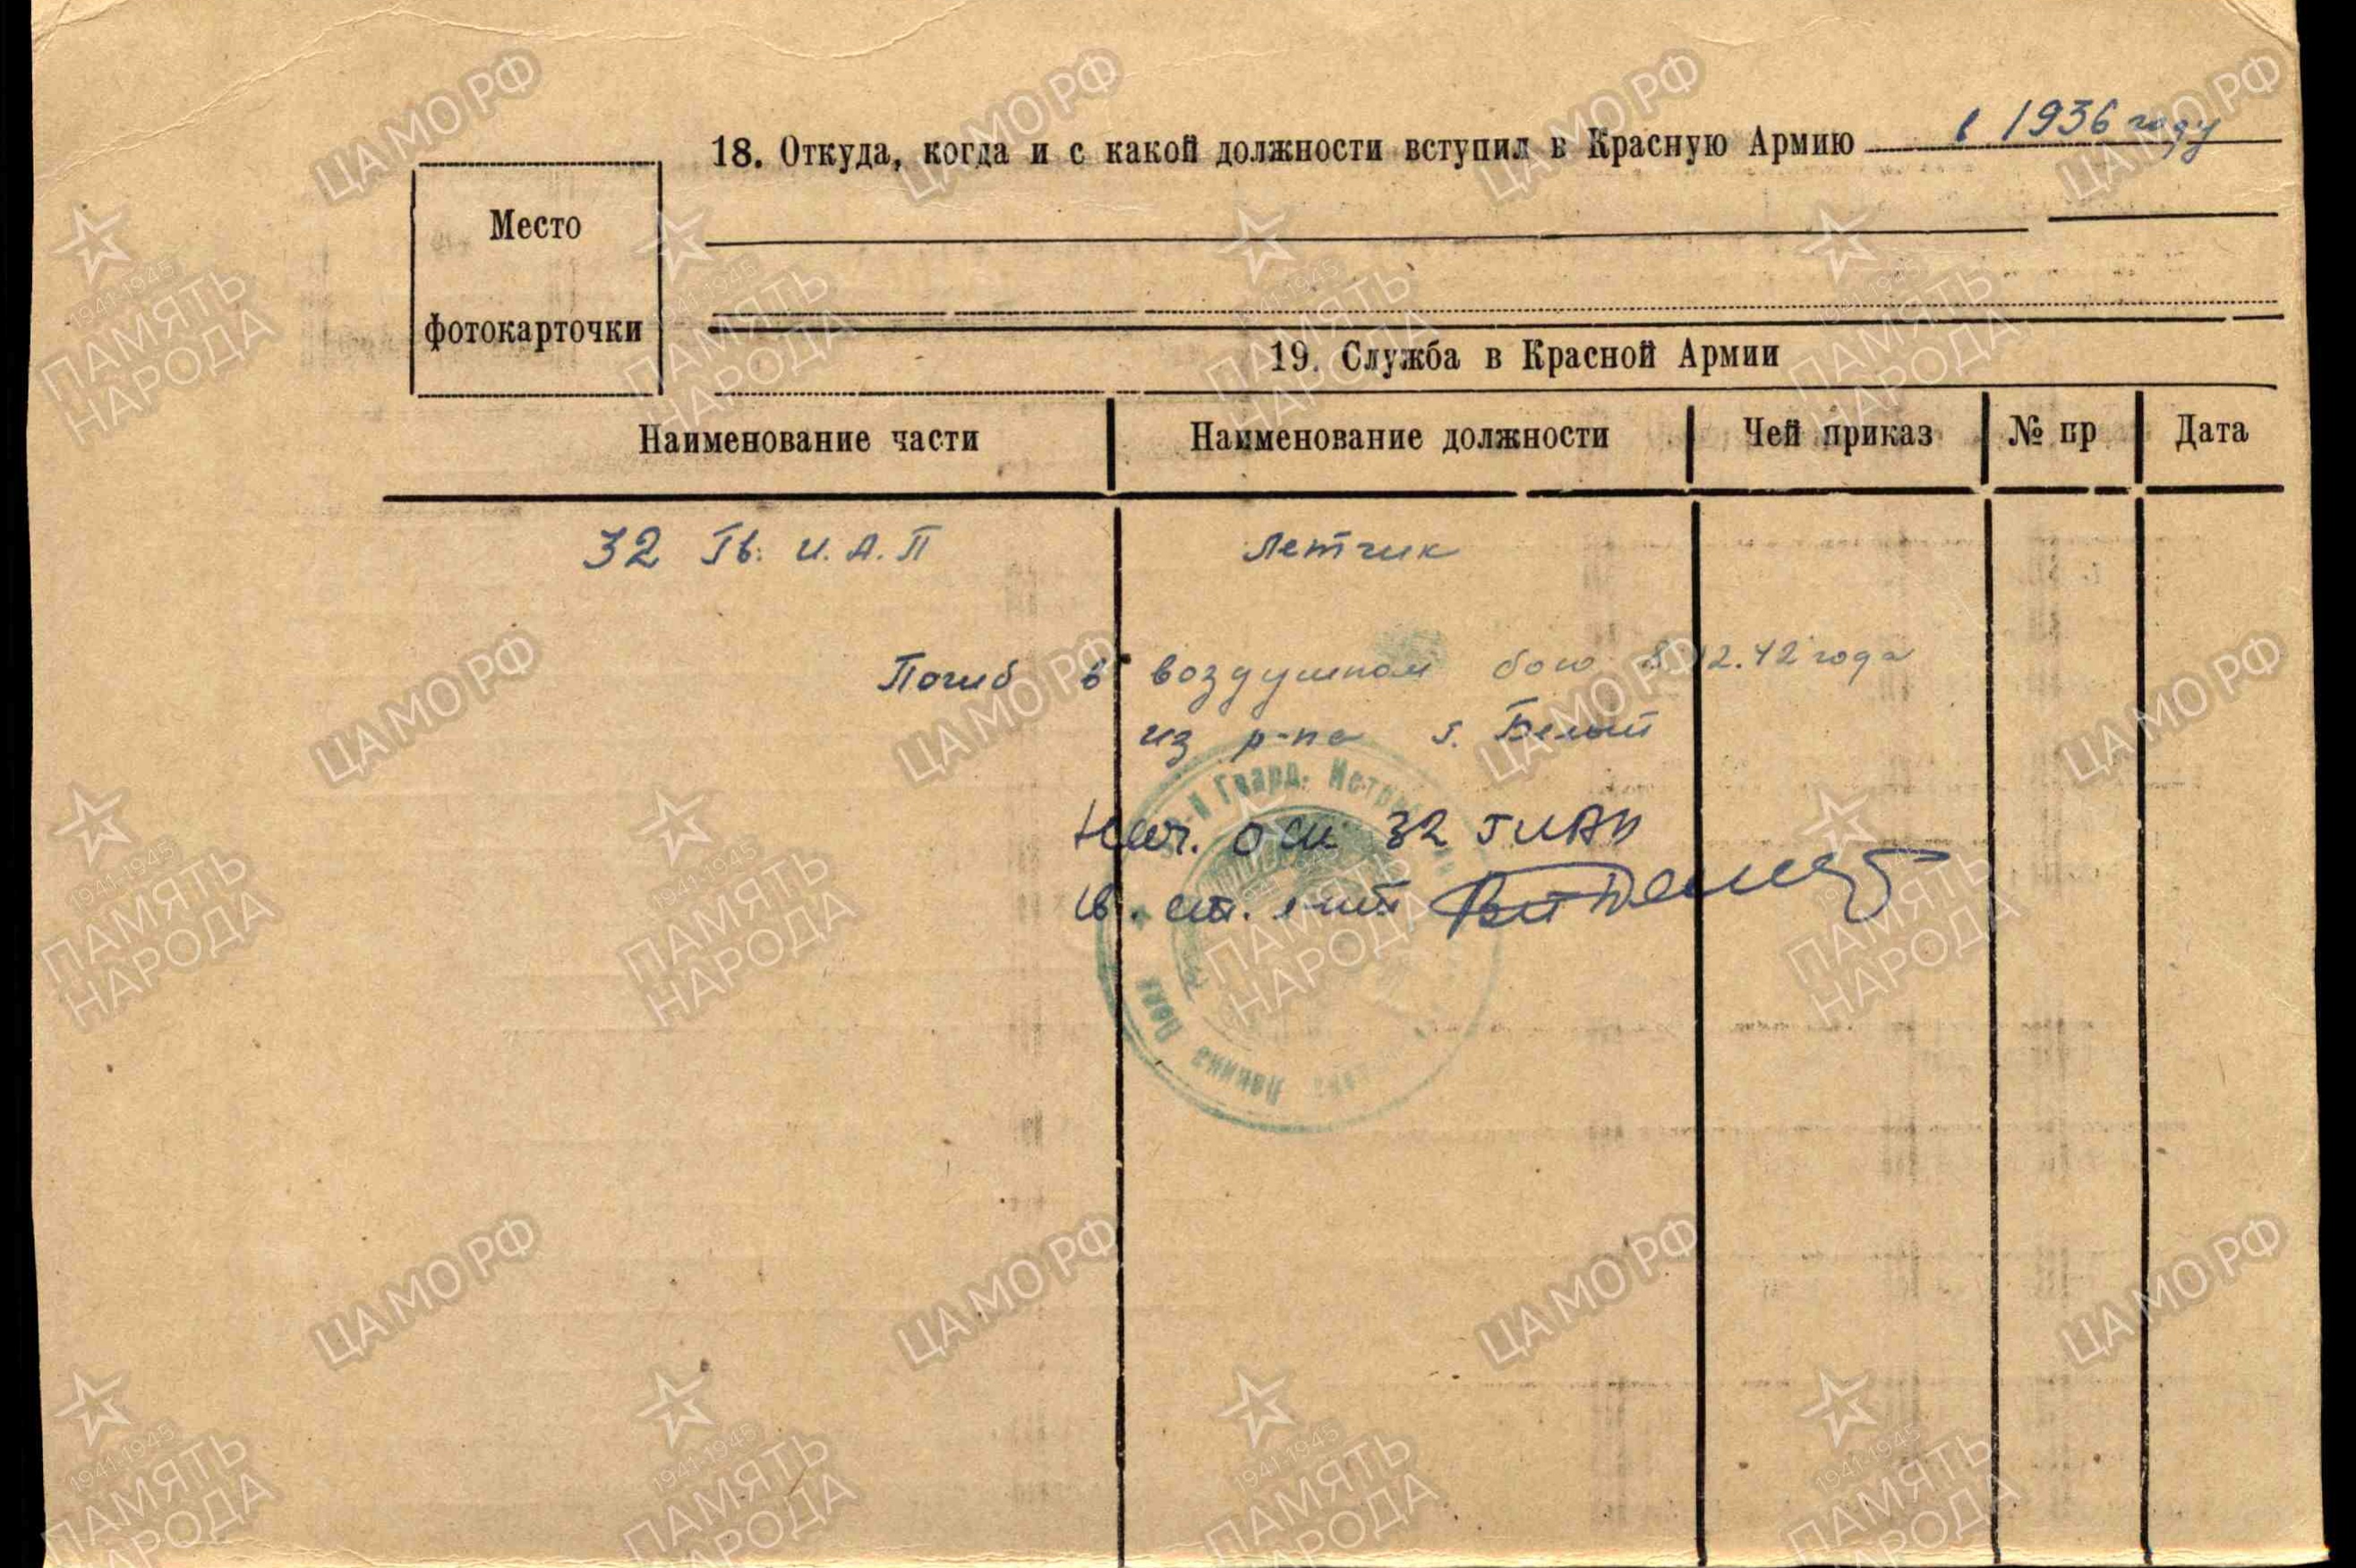 18. Откуда, когда и с какой должности вступил в Красную Армию в 1936 году
Место
фотокарточки
19. Служба в Красной Армии
Наименование части Наименование должности Чей приказ № пр Дата
32 Гв. И.А.П Летчик
Погиб в воздушном бою 8.12.42 года
из р-на г. Белый
Нач. 32 ГИАП
Гв. ст. л-нт
Гвард. Истр
Ленина Полк
ЦАМО РФ
1941-1945
ПАМЯТЬ
НАРОДА